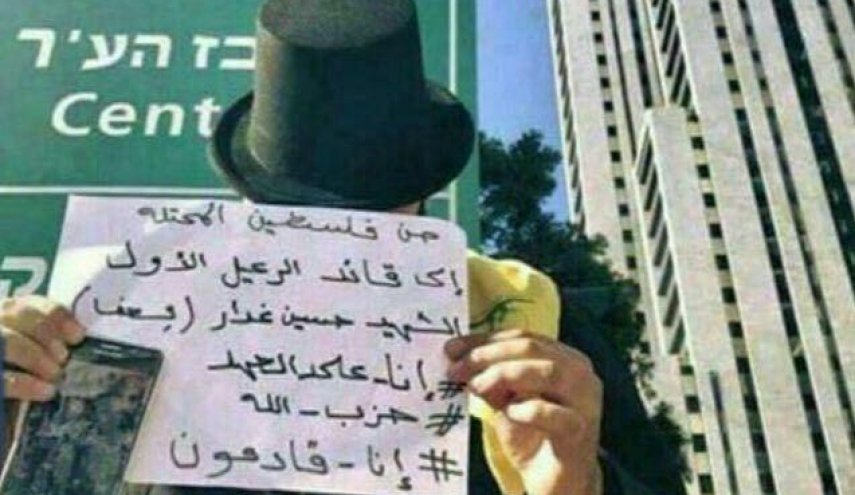 כז הע'ר
Cent
من فلسطين المحتله
إلى قائد الرعيل الأول
الشهيد حسين غدار
#إنا-على-العهد
#حزب-الله
#إنا-قادمون